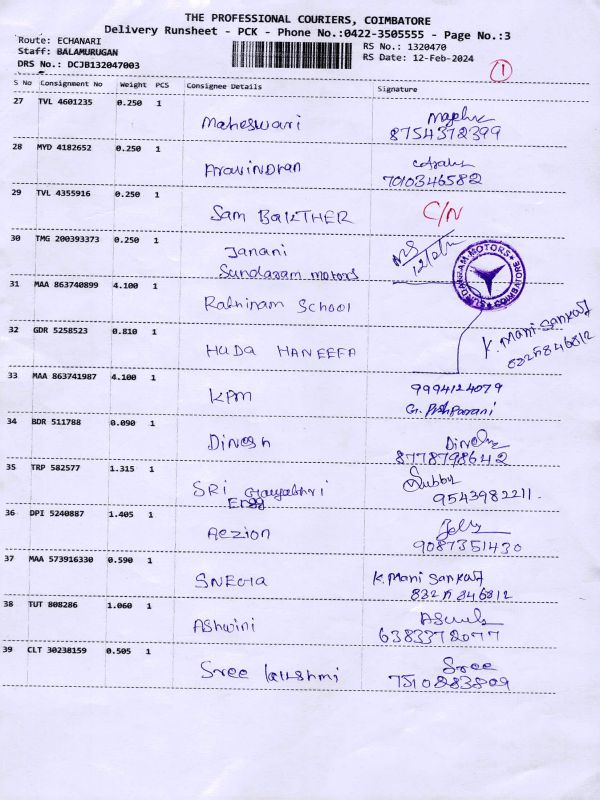 THE PROFESSIONAL COURIERS, COIMBATORE
Delivery Runsheet - PCK - Phone No.:0422-3505555 - Page No.:3
Route: ECHANARI
RS No.: 1320470
Staff: BALAMURUGAN
RS Date: 12-Feb-2024
DRS No.: DCJB132047003
1
S No Consignment No Weight PCS Consignee Details Signature
27 TVL 4601235 0.250 1
Maheswari
8754372399
28 MYD 4182652 0.250 1
Aravindhan
7010346582
29 TVL 4355916 0.250 1
Sam BAKTHER C/N
30 TMG 200393373 0.250 1
Janani
Sundaram motors
SUNDARAM MOTORS COIMBATORE
31 MAA 863740899 4.100 1
Rathinam School
32 GDR 5258523 0.810 1
K. Mani Sankar
HUDA HANEEFA
33 MAA 863741987 4.100 1
KPM 9994124079
34 BDR 511788 0.090 1
Dinesh
8778798642
35 TRP 582577 1.315 1
SRI Gayathri Subbu
Engg 9543982211.
36 DPI 5240887 1.405 1
Aczion
9087351430
37 MAA 573916330 0.590 1
SNEGA K. Mani Sankar
38 TUT 808286 1.060 1
Ashwini
6383372077
39 CLT 30238159 0.505 1
Sree lakshmi Sree
7510883809